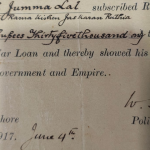 Jumma Lal subscribed R
Rama Kishen Jaskaran Ruthia
Rupees Thirtyfive thousand only
ar Loan and thereby showed his
overnment and Empire..
W.
hore
Poli
917. June 4th.